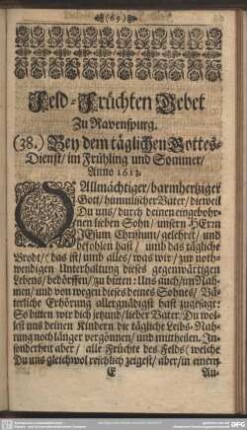 (65)
Feld-Früchten Gebet
Zu Ravenspurg.
(38.) Bey dem täglichen Gottes-
Dienst/ im Frühling und Sommer/
Anno 1613.
O Allmächtiger/ barmhertziger
Gott/ himmlischer Vater/ dieweil
Du uns/ durch deinen eingebohr-
nen lieben Sohn/ unsern HErrn
JEsum Christum/ gelehret/ und
befohlen hast/ umb das tägliche
Brodt/ (das ist/ umb alles/ was wir/ zur noth-
wendigen Unterhaltung dieses gegenwärtigen
Lebens/ bedörffen/) zu bitten: Uns auch/ im Nah-
men/ und von wegen dieses deines Sohnes/ Vä-
terliche Erhörung allergnädigst hast zugesagt:
So bitten wir dich jetzund/ lieber Vater: Du wol-
lest uns deinen Kindern die tägliche Leibs-Nah-
rung noch länger vergönnen/ und mittheilen. In-
sonderheit aber/ alle Früchte des Felds/ (welche
Du uns gleichwol reichlich zeigest/ aber/ in einem
E Au-